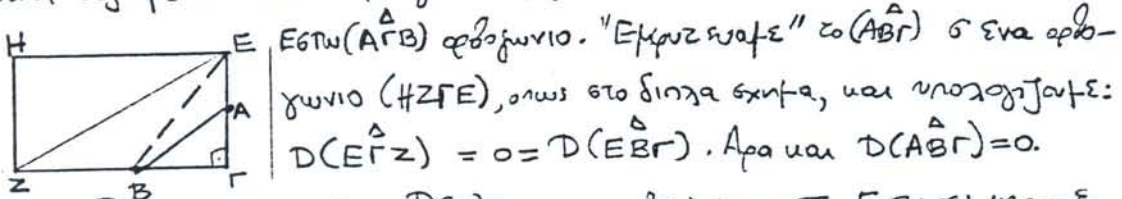 Η Ε
Α
Ζ Β Γ
Εστω (ΑΓ̂Β) ορθογωνιο. "Εμφυτευαμε" το (ΑΒ̂Γ) σ' ενα ορθο-
γωνιο (ΗΖΓΕ), οπως στο διπλα σχημα, και υπολογιζουμε:
D(ΕΓ̂Ζ) = 0 = D(ΕΒ̂Γ). Αρα και D(ΑΒ̂Γ)=0.